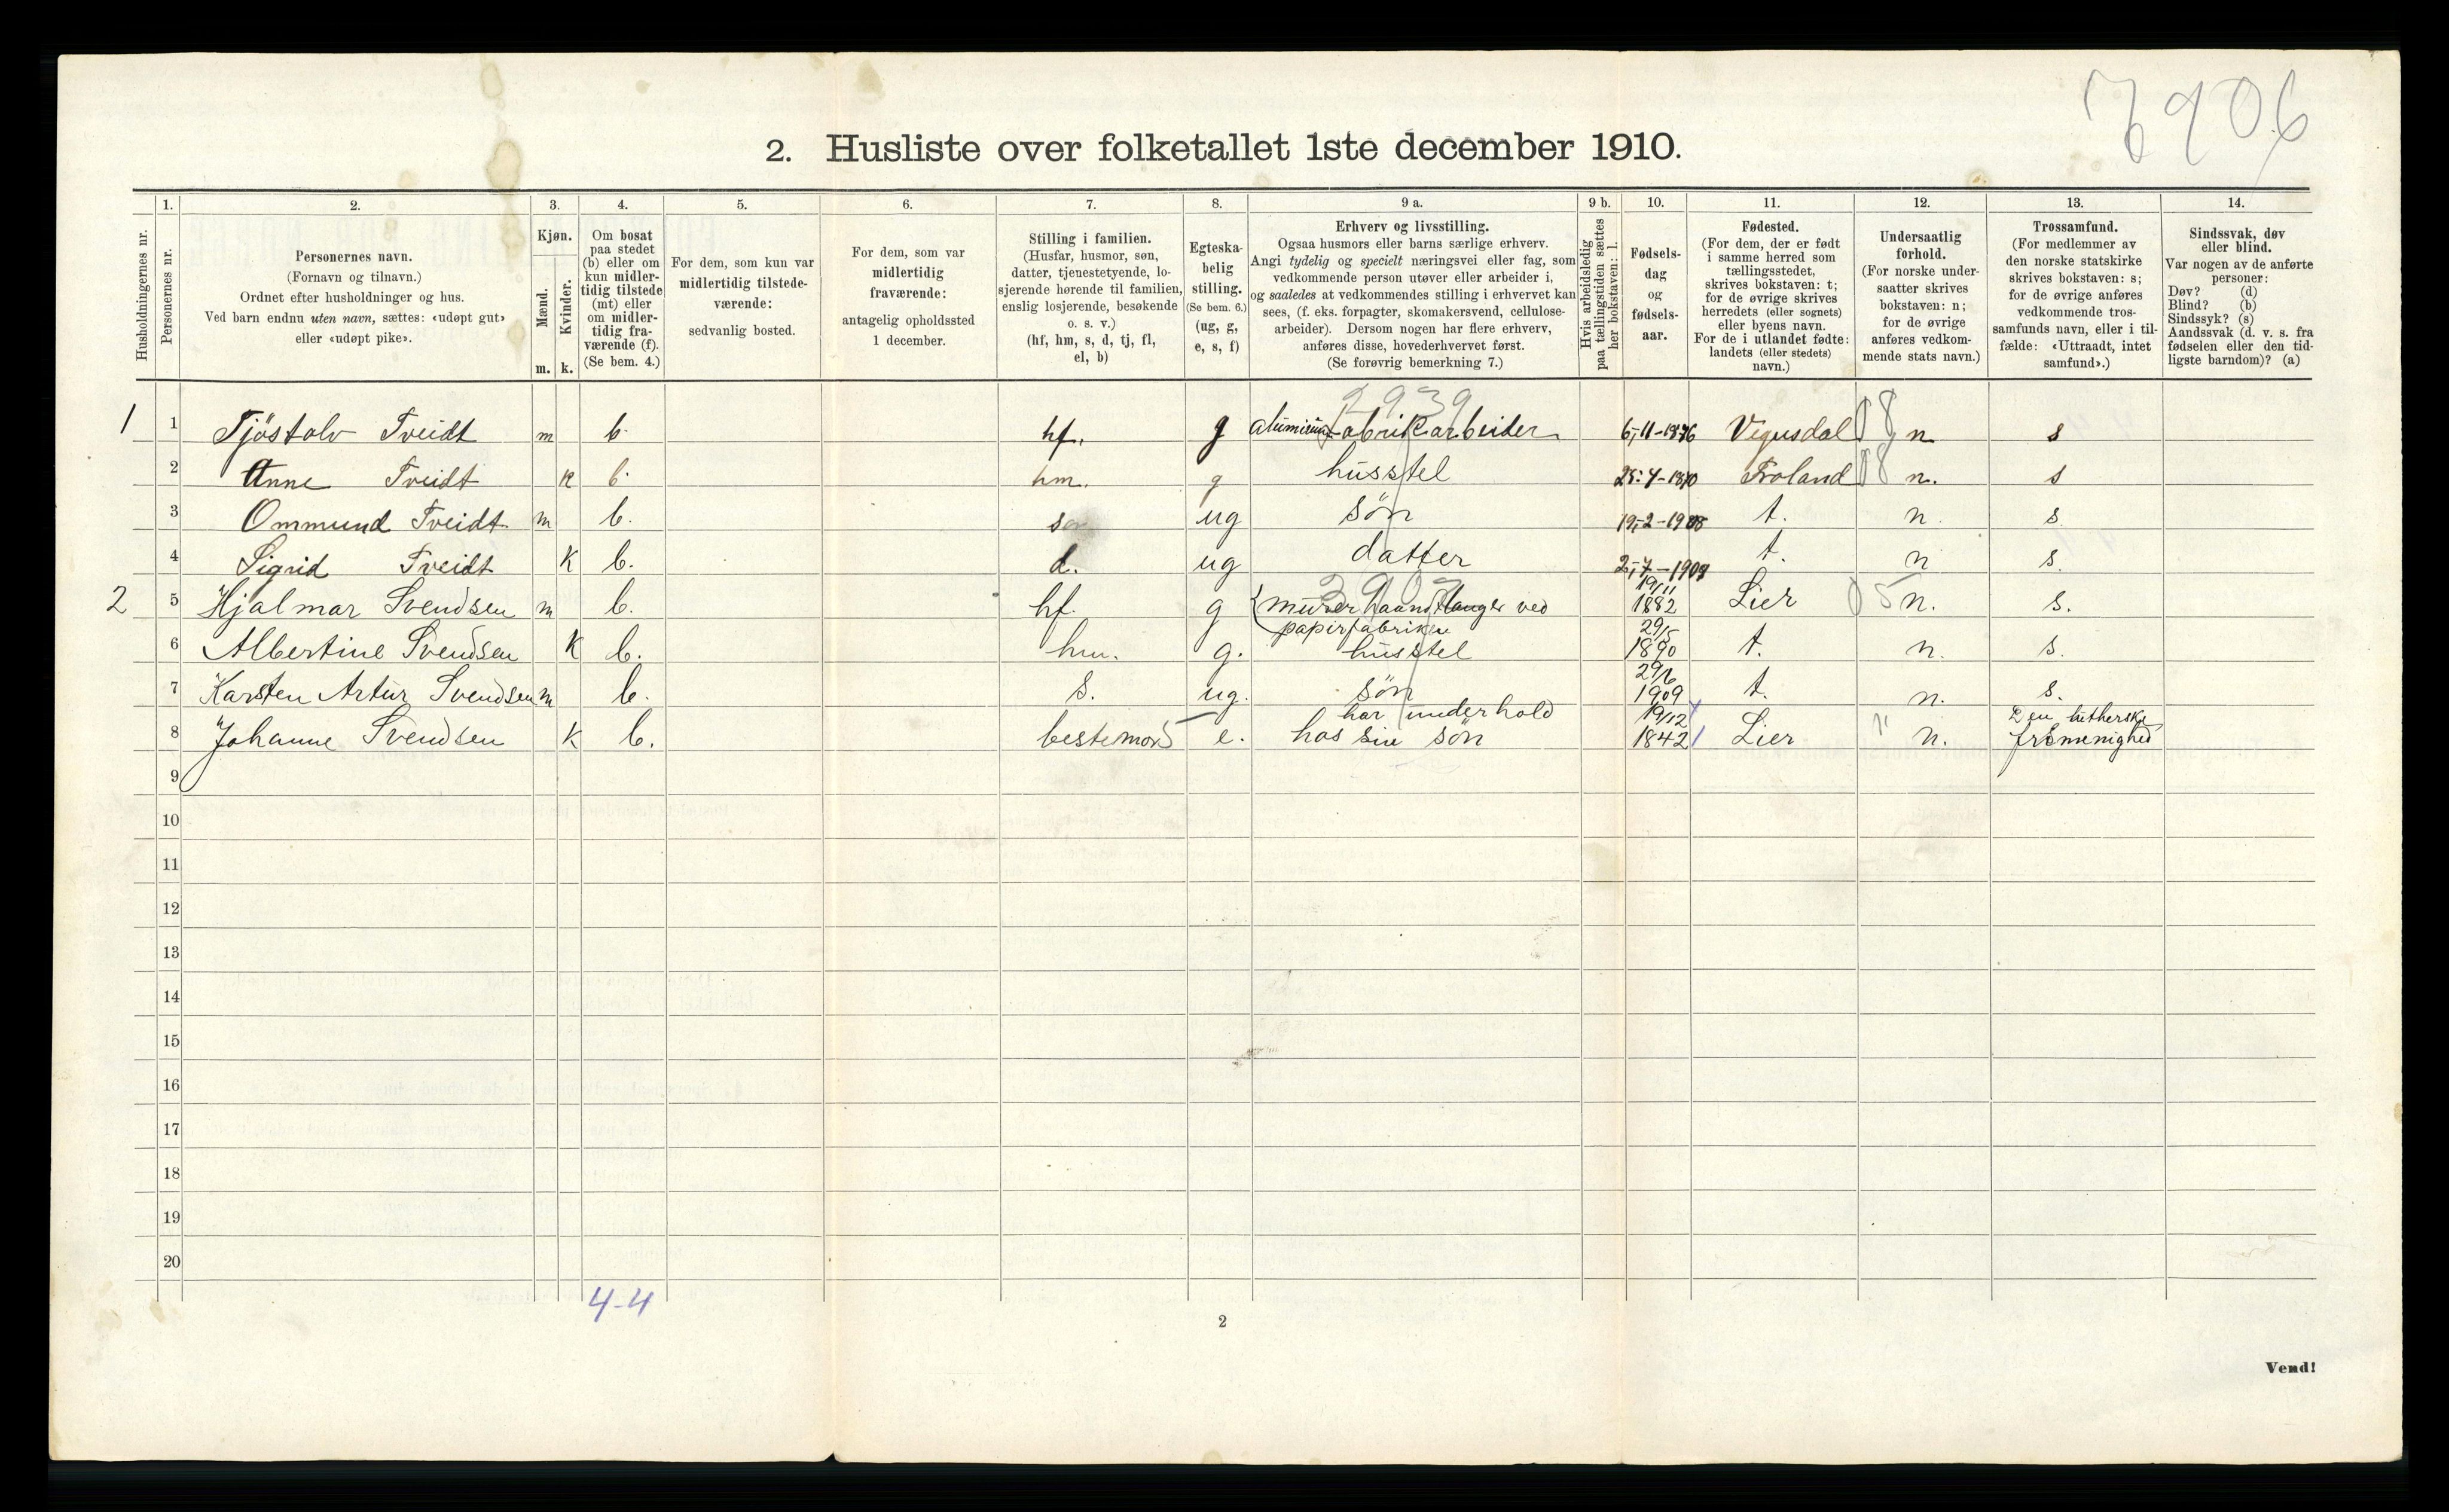 7906
2. Husliste over folketallet 1ste december 1910.
Husholdningernes nr.
1.
Personernes nr.
2.
Personernes navn.
(Fornavn og tilnavn.)
Ordnet efter husholdninger og hus.
Ved barn endnu uten navn, sættes: «udøpt gut»
eller «udøpt pike».
3.
Kjøn.
Mænd.
Kvinder.
m. k.
4.
Om bosat
paa stedet
(b) eller om
kun midler-
tidig tilstede
(mt) eller
om midler-
tidig fra-
værende (f).
(Se bem. 4.)
5.
For dem, som kun var
midlertidig tilstede-
værende:
sedvanlig bosted.
6.
For dem, som var
midlertidig
fraværende:
antagelig opholdssted
1 december.
7.
Stilling i familien.
(Husfar, husmor, søn,
datter, tjenestetyende, lo-
sjerende hørende til familien,
enslig losjerende, besøkende
o. s. v.)
(hf, hm, s, d, tj, fl,
el, b)
8.
Egteska-
belig
stilling.
(Se bem. 6.)
(ug, g,
e, s, f)
9 a.
Erhverv og livsstilling.
Ogsaa husmors eller barns særlige erhverv.
Angi tydelig og specielt næringsvei eller fag, som
vedkommende person utøver eller arbeider i,
og saaledes at vedkommendes stilling i erhvervet kan
sees, (f. eks. forpagter, skomakersvend, cellulose-
arbeider). Dersom nogen har flere erhverv,
anføres disse, hovederhvervet først.
(Se forøvrig bemerkning 7.)
9 b.
Hvis arbeidsledig
paa tællingstiden sættes
her bokstaven: l.
10.
Fødsels-
dag
og
fødsels-
aar.
11.
Fødested.
(For dem, der er født
i samme herred som
tællingsstedet,
skrives bokstaven: t;
for de øvrige skrives
herredets (eller sognets)
eller byens navn.
For de i utlandet fødte:
landets (eller stedets)
navn.)
12.
Undersaatlig
forhold.
(For norske under-
saatter skrives
bokstaven: n;
for de øvrige
anføres vedkom-
mende stats navn.)
13.
Trossamfund.
(For medlemmer av
den norske statskirke
skrives bokstaven: s;
for de øvrige anføres
vedkommende tros-
samfunds navn, eller i til-
fælde: «Uttraadt, intet
samfund».)
14.
Sindssvak, døv
eller blind.
Var nogen av de anførte
personer:
Døv? (d)
Blind? (b)
Sindssyk? (s)
Aandssvak (d. v. s. fra
fødselen eller den tid-
ligste barndom)? (a)
2939
1 1 Tjöstolv Tveidt m b. hf. g aluminiumfabrikarbeider 6-11-1876 Vegusdal 08 n s
2 Anne Tveidt k b. hm. g husstel 25-4-1870 Froland 08 n. s
3 Ommund Tveidt m b. ug sön 19-2-1908 t. n s.
4 Sigrid Tveidt k b. d. ug datter 2-7-1909 t. n s.
2 5 Hjalmar Svendsen m b. hf. g murer haandtlanger ved papirfabriken 19/11 1882 Lier 05 n. s.
6 Albertine Svendsen k b. hm. g. husstel 29/5 1890 t. n. s.
7 Karsten Artur Svendsen m b. s. ug. sön 29/6 1909 t. n. s.
8 Johanne Svendsen k b. bestemor e. har underhold hos sin sön 19/12 1842 Lier " n. Den lutherske frimenighed
9
10
11
12
13
14
15
16
17
18
19
20
4-4
2
Vend!